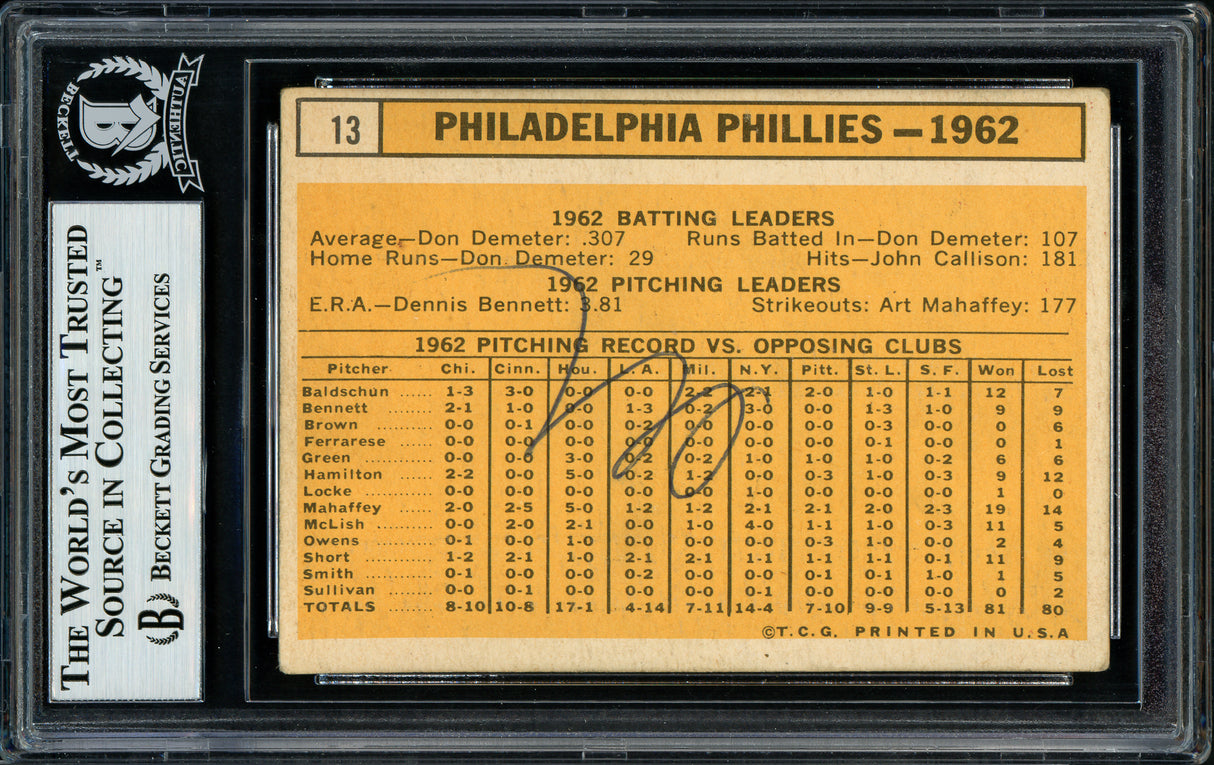 BECKETT AUTHENTIC
B
THE WORLD'S MOST TRUSTED
SOURCE IN COLLECTING™
BECKETT GRADING SERVICES
B
13 PHILADELPHIA PHILLIES—1962
1962 BATTING LEADERS
Average—Don Demeter: .307 Runs Batted In—Don Demeter: 107
Home Runs—Don Demeter: 29 Hits—John Callison: 181
1962 PITCHING LEADERS
E.R.A.—Dennis Bennett: 3.81 Strikeouts: Art Mahaffey: 177
1962 PITCHING RECORD VS. OPPOSING CLUBS
Pitcher Chi. Cinn. Hou. L.A. Mil. N.Y. Pitt. St. L. S. F. Won Lost
Baldschun ...... 1-3 3-0 0-0 0-0 2-2 2-1 2-0 1-0 1-1 12 7
Bennett ...... 2-1 1-0 0-0 1-3 0-2 3-0 0-0 1-3 1-0 9 9
Brown ...... 0-0 0-1 0-0 0-2 0-0 0-0 0-0 0-3 0-0 0 6
Ferrarese ...... 0-0 0-0 0-0 0-0 0-0 0-0 0-0 0-1 0-0 0 1
Green ...... 0-0 0-0 3-0 0-2 0-2 1-0 1-0 1-0 0-2 6 6
Hamilton ...... 2-2 0-0 5-0 0-2 1-2 0-0 0-3 1-0 0-3 9 12
Locke ...... 0-0 0-0 0-0 0-0 0-0 1-0 0-0 0-0 0-0 1 0
Mahaffey ...... 2-0 2-5 5-0 1-2 1-2 2-1 2-1 2-0 2-3 19 14
McLish ...... 0-0 2-0 2-1 0-0 1-0 4-0 1-1 1-0 0-3 11 5
Owens ...... 0-1 0-0 1-0 0-0 0-0 0-0 0-3 1-0 0-0 2 4
Short ...... 1-2 2-1 1-0 2-1 2-1 1-1 1-1 1-1 0-1 11 9
Smith ...... 0-1 0-0 0-0 0-2 0-0 0-0 0-1 0-1 1-0 1 5
Sullivan ...... 0-0 0-1 0-0 0-0 0-0 0-1 0-0 0-0 0-0 0 2
TOTALS ...... 8-10 10-8 17-1 4-14 7-11 14-4 7-10 9-9 5-13 81 80
©T.C.G. PRINTED IN U.S.A